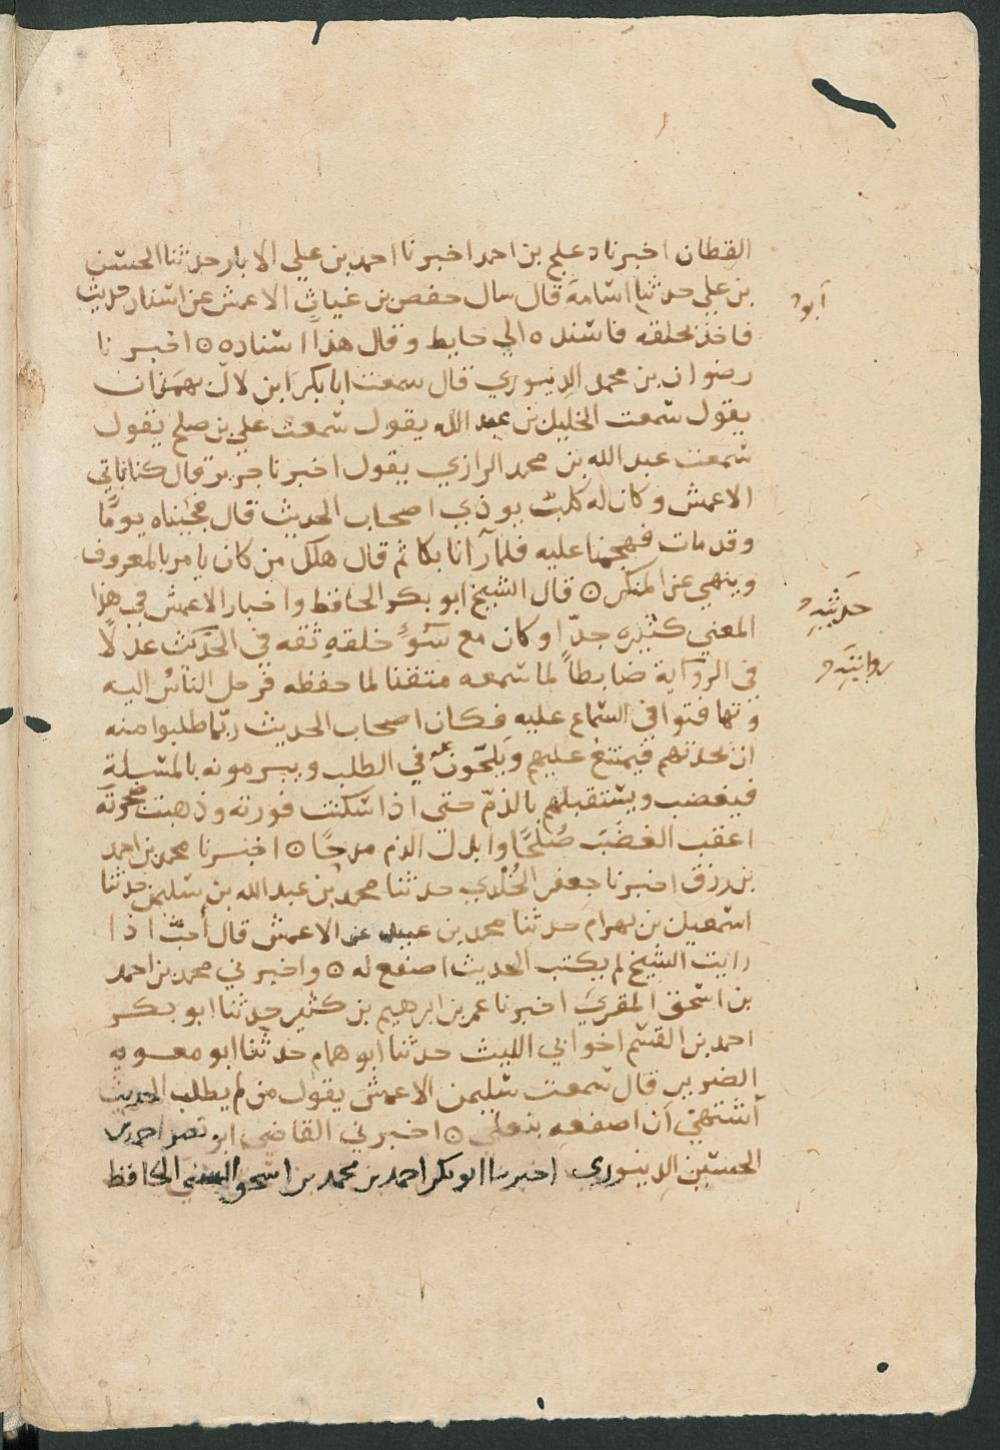 القطان اخبرنا دعلج بن احمد اخبرنا احمد بن علي الابار حدثنا الحسن
بن علي حدثنا اسامة قال سال حفص بن غياث الاعمش عن اسناد حديث
ابو
فاخذ بحلقه فاسنده الي حايط وقال هذا اسناده ٥ اخبرنا
رضوان بن محمد الدينوري قال سمعت ابا بكر ابن لال بهمذان
يقول سمعت الخليل بن عبد الله يقول سمعت علي بن صلح يقول
سمعت عبد الله بن محمد الرازي يقول اخبرنا جرير قال كنا ناتي
الاعمش وكان له كلب يوذي اصحاب الحديث قال فجيناه يومًا
وقد مات فهجمنا عليه فلما رآنا بكا ثم قال هلك من كان يامر بالمعروف
وينهي عن المنكر ٥ قال الشيخ ابو بكر الحافظ واخبار الاعمش في هذا
المعني كثيرة جدّا وكان مع سُوءِ خلقهِ ثقه في الحديث عدلًا
حديثه
في الرواية ضابطاً لما سمعه متقنا لما حفظه فرحل الناسُ اليه
روايته
وتهافتوا في السماع عليه فكان اصحاب الحديث ربّما طلبوا منه
ان يحدثهم فيمتنع عليهم ويلحّون في الطلب ويبرمونه بالمسلة
فيغضب ويستقبلهم بالذمّ حتى اذا سكنت فورته وذهبت ضجرته
اعقب الغضب صُلحًا وابدل الذم مدحًا ٥ اخبرنا محمد بن احمد
بن رزق اخبرنا جعفر الخُلدي حدثنا محمد بن عبد الله بن سليمن حدثنا
اسمعيل بن بهرام حدثنا محمد بن عبيد عن الاعمش قال احبّ اذا
رايت الشيخ لم يكتب الحديث اصفع له ٥ واخبرني محمد بن احمد
بن اسحق المقري اخبرنا عمر بن ابرهيم بن كثير حدثنا ابو بكر
احمد بن القسم اخو ابي الليث حدثنا ابو همام حدثنا ابو معويه
الضرير قال سمعت سليمن الاعمش يقول من لم يطلب الحديث
أشتهي أن اصفعه بنعلي ٥ اخبرني القاضي ابو نصر احمد بن
الحسين الدينوري اخبرنا ابو بكر احمد بن محمد بن اسحق السني الحافظ